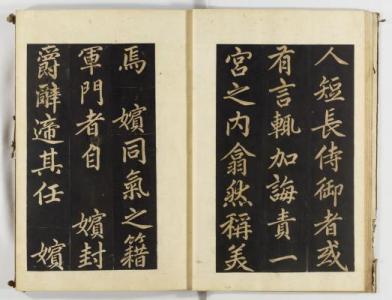 人短長侍御者或
有言輒加誨責一
宮之内翕然稱美
焉 嬪同氣之籍
軍門者自 嬪封
爵辭遆其任 嬪